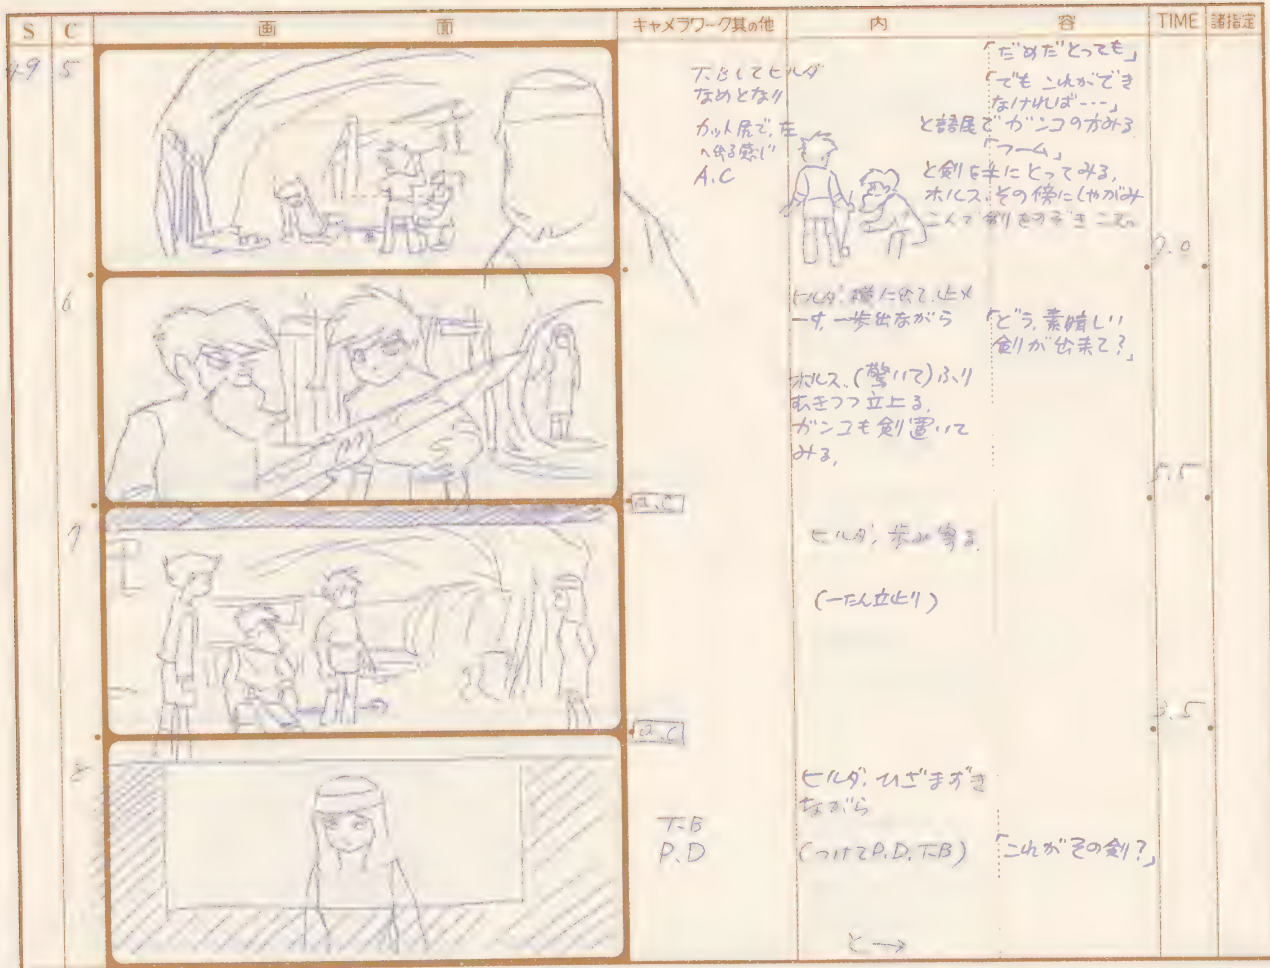 S C 画面 キャメラワーク其の他 内容 TIME 諸指定
49 5
T.Bしてヒルダ
なめとなり
カット尻で、左
へ出る感じ
A.C
「だめだとっても」
「でもこれができ
なければ---」
と語尾でガンコの方みる
「フーム」
と剣を手にとってみる。
ホルス、その傍にしゃがみ
二人で剣をのぞきこむ。
9.0
6
ヒルダ、横に出て、
一歩出ながら
「どう、素晴しい
剣が出来て?」
ホルス、(驚いて)ふり
むきつつ立上る。
ガンコも剣置いて
みる。
5.5
a.c
7
ヒルダ、歩み寄る。
(一たん立止り)
3.5
a.c
8
T.B
P.D
ヒルダ、ひざまずき
ながら
(つけてP.D.T.B)
「これがその剣?」
と→